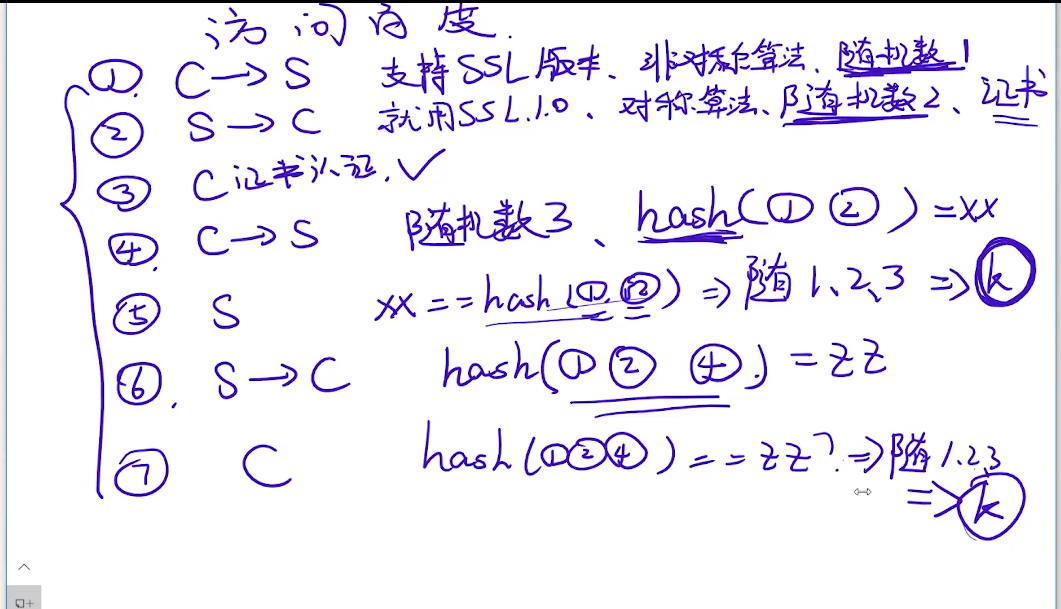 访问百度.
① C → S 支持SSL版本、非对称加密算法、随机数1
② S → C 就用SSL1.0、对称算法、随机数2、证书
③ C 证书认证. ✓
④ C → S 随机数3、hash(① ②) = xx
⑤ S xx == hash(①, ②) => 随1、2、3 => k
⑥ S → C hash(① ② ④) = zz
⑦ C hash(①②④) == zz? => 随1.2.3
=> k